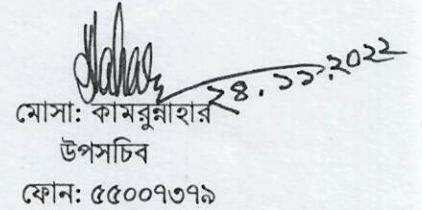 ২৪.১১.2022
মোসা: কামরুন্নাহার
উপসচিব
ফোন: ৫৫০০৭৩৭৯